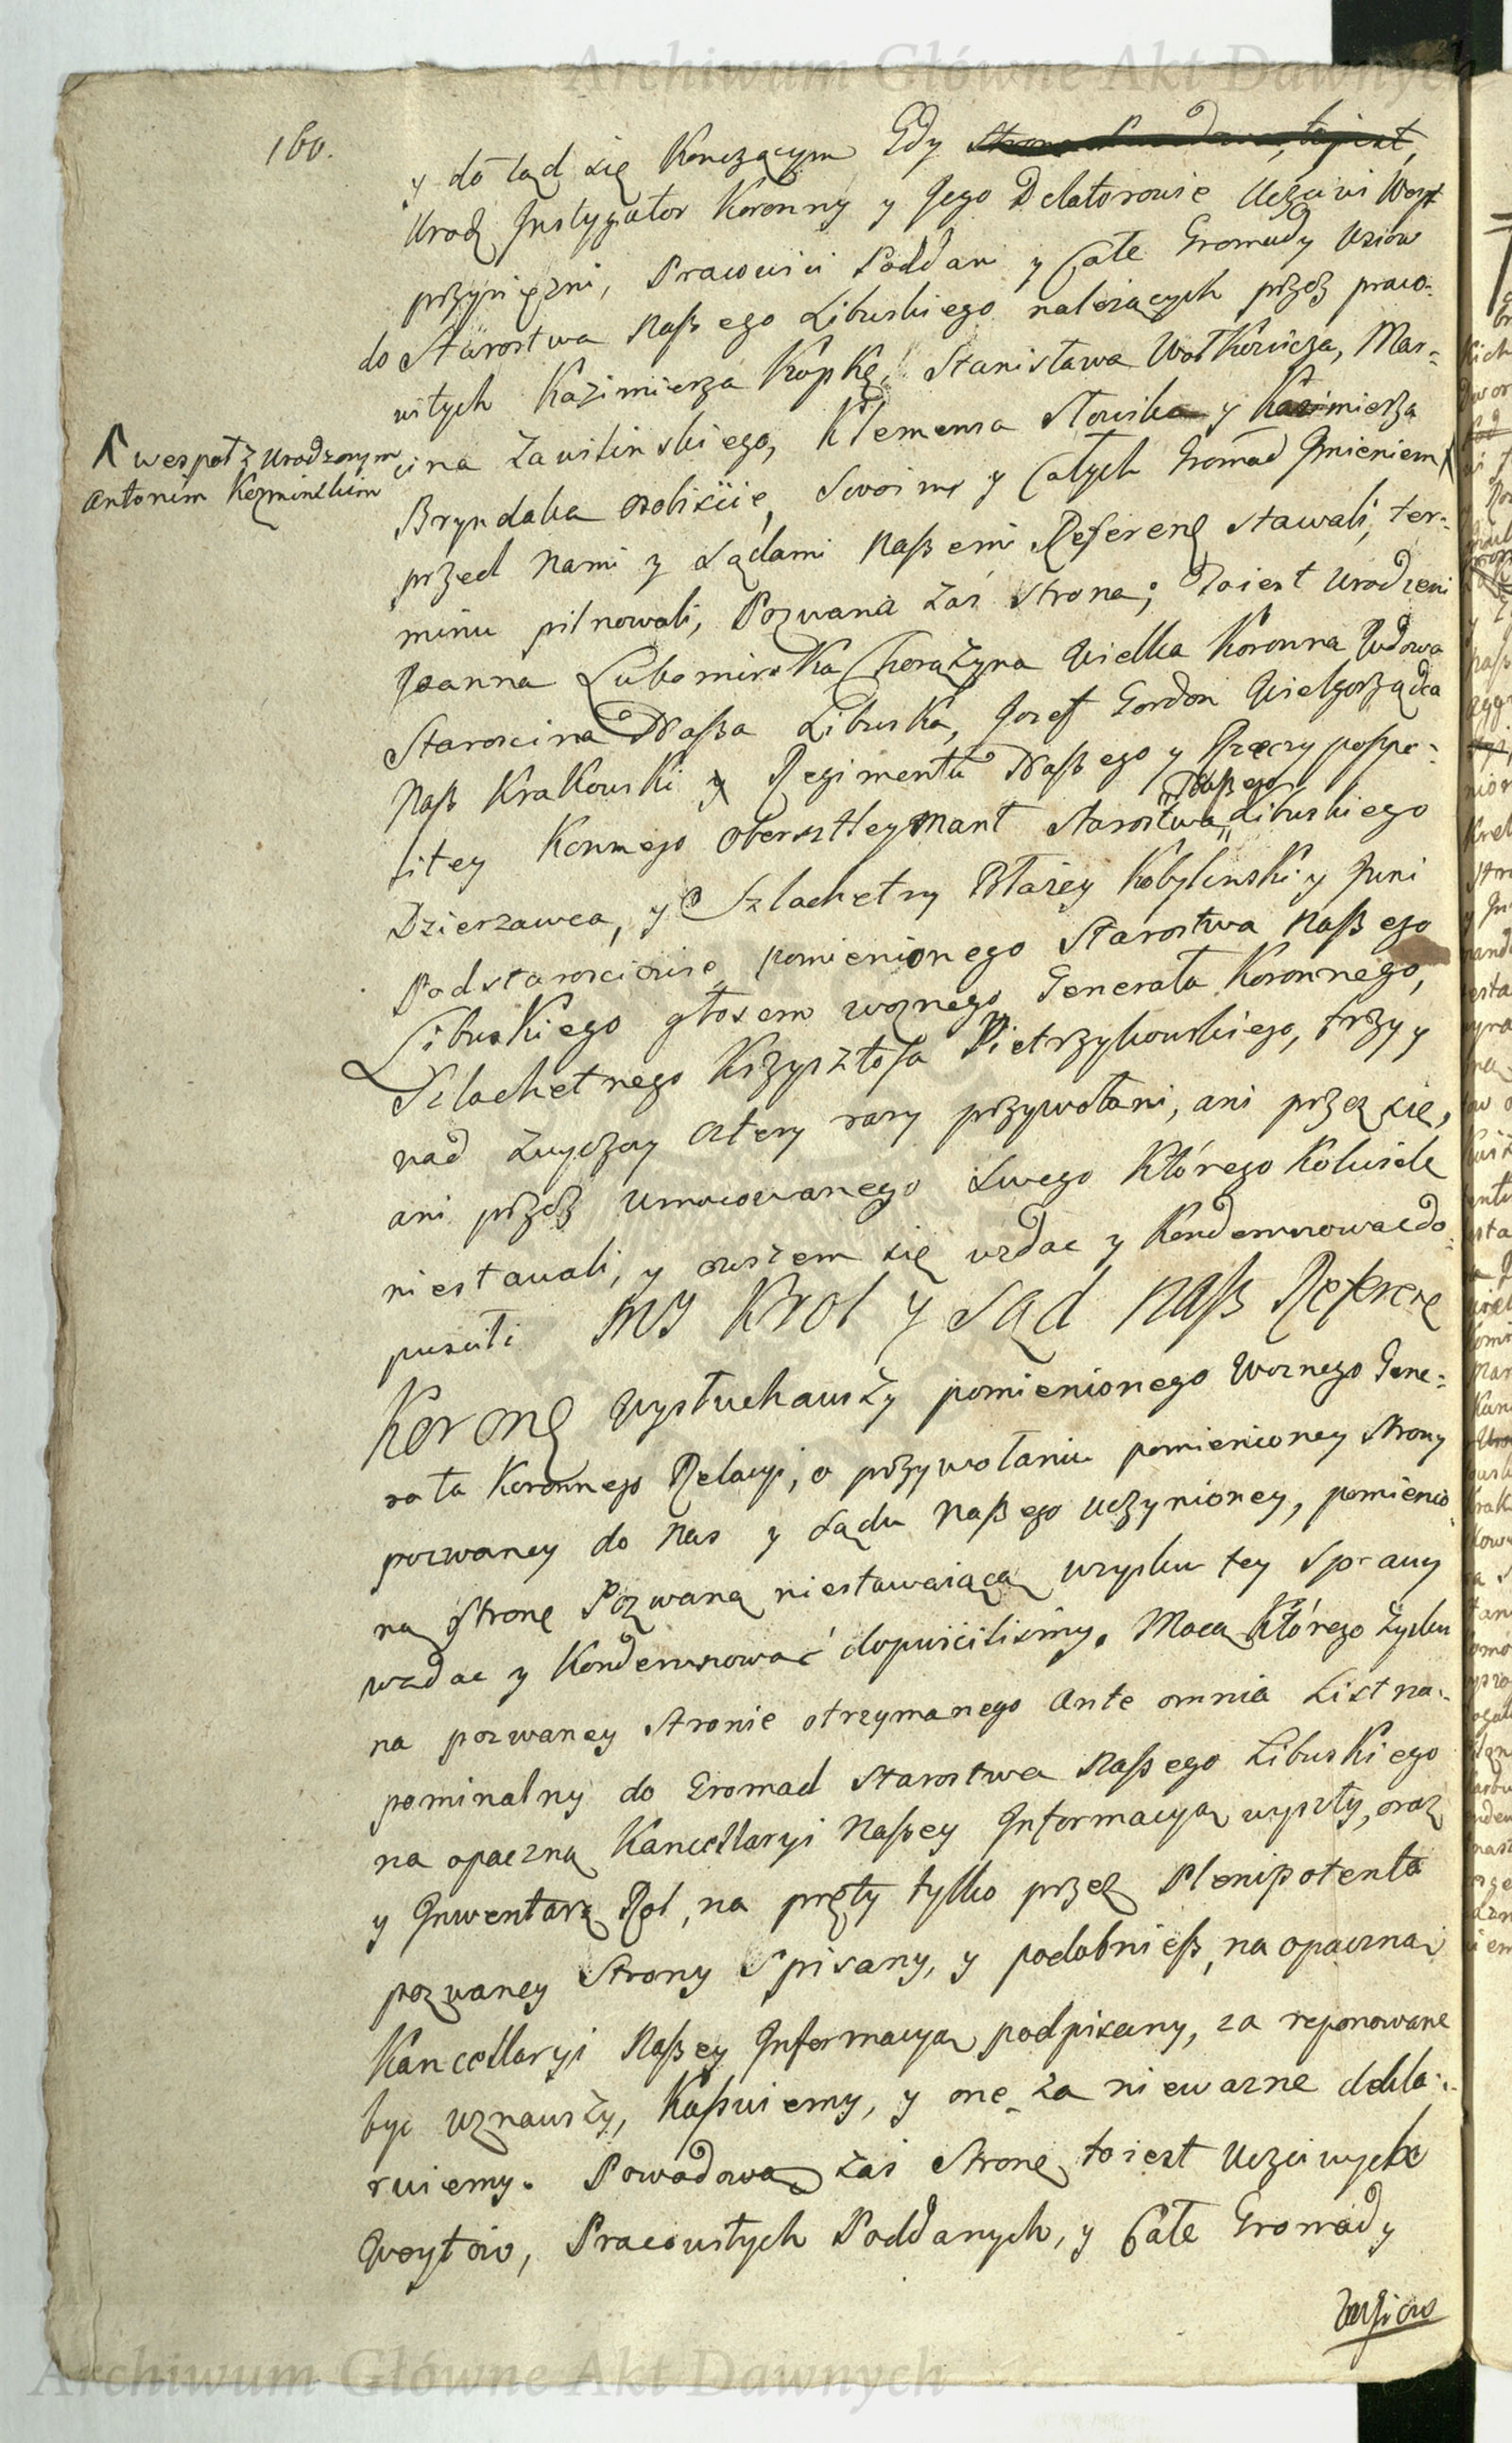 Archiwum Główne Akt Dawnych
160.
y do tąd się Konczącym Gdy
Urodz Instygator Koronny y Jego Delatorowie Uczciwi Woyt
przysiężni, Pracowici Poddani y Całe Gromady Wsiow
do Starostwa Naszego Libuskiego należących przez praco-
witych Kazimierza Kopkę, Stanisława Wołkowicza, Mar-
cina Zawilinskiego, Klemensa Słowika y Kazimierza
Λ wespoł z Urodzonym
Antonim Kozminskim
Bryndala osobiście, Swoim y Całych Gromad Imieniem Λ
przed Nami y Sądami Naszemi Referen stawali, ter-
minu pilnowali, Pozwana zaś Strona; To iest Urodzeni
Joanna Lubomirska Chorążyna Wielka Koronna Wdowa
Starościna Nasza Libuska, Jozef Gordon Wielgorządca
Nasz Krakowski y Regimentu Naszego y Rzeczypospo-
litey Konnego Obersztleytnant Starostwa „Naszego„ Libuskiego
Dzierzawca, y Szlachetny Błażey Kobylenski y Inni
Podstarościowie pomienionego Starostwa Naszego
Libuskiego głosem woznego Generała Koronnego,
Szlachetnego Krzysztofa Pietrzykowskiego, trzy y
nad zwyczay cztery razy przywołani, ani przez się,
ani przez umocowanego Swego Którego Kolwiek
niestawali, y owszem się wzdac y Kondemnowac do-
puscili MY Krol y Sąd Nasz Referen
Koronę Wysłuchawszy pomienionego Woznego Gene-
rała Koronnego Relacyi, o przywołaniu pomienioney strony
pozwaney do Nas y Sądu Naszego uczynioney, pomienio-
ną Stronę Pozwaną niestawaiącą wzysku tey Sprawy
wzdac y Kondemnować dopuściliśmy. Mocą Którego Zysku
na pozwaney Stronie otrzymanego Ante omnia List na-
pominalny do Gromad Starostwa Naszego Libuskiego
na opaczną Kancellaryi Naszey Informacyą wyszły, oraz
y Inwentarz Rol, na pręty tylko przez Plenipotenta
pozwaney Strony Spisany, y podobnież, na opaczną
Kancellaryi Naszey Informacyą podpisany, za reponowane
byc uznawszy, Kassuiemy, y one za niewazne dekla-
ruiemy. Powodową zaś Stronę, to iest Uczciwych
Woytow, Pracowitych Poddanych, y Całe Gromady
Wsiow
Archiwum Główne Akt Dawnych